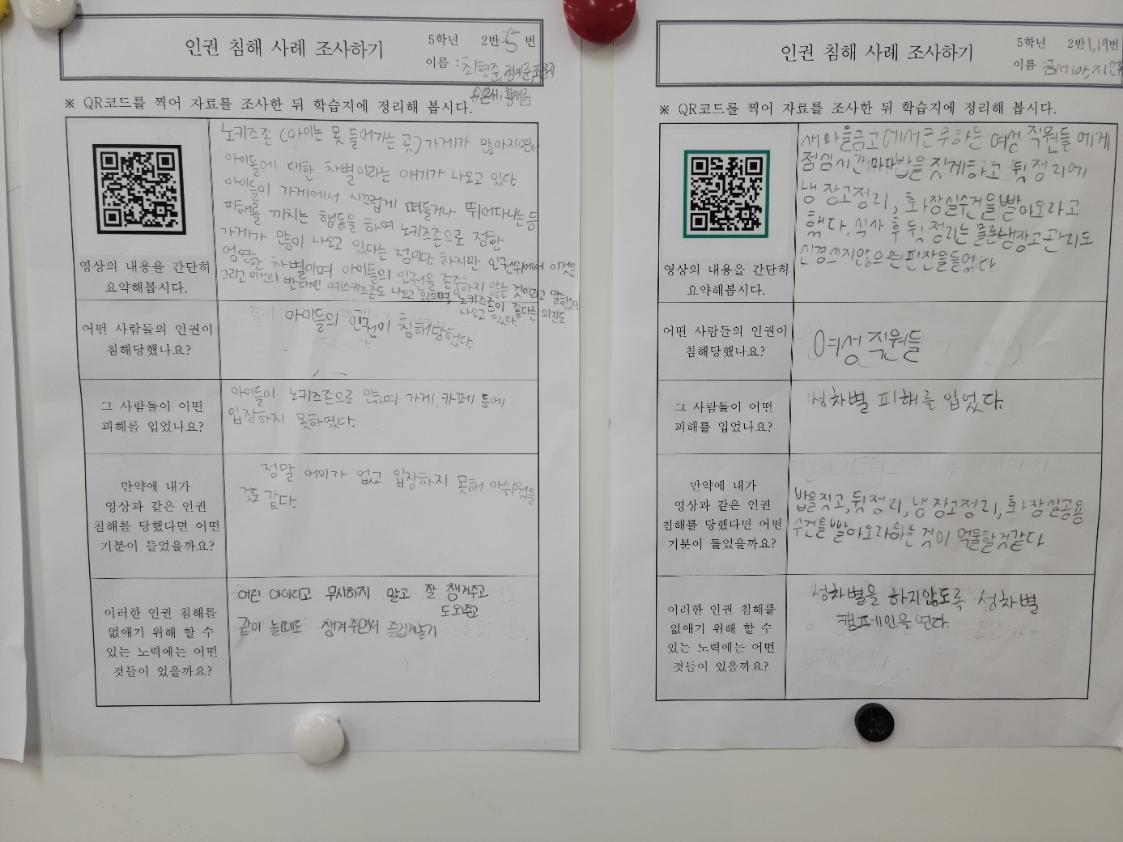 인권 침해 사례 조사하기
5학년 2반 5번
이름 : 최현준,
※ QR코드를 찍어 자료를 조사한 뒤 학습지에 정리해 봅시다.
영상의 내용을 간단히
요약해봅시다.
노키즈존 (아이는 못 들어가는 곳) 가게가 많아지면서
아이들에 대한 차별이라는 얘기가 나오고 있다.
아이들이 가게에서 시끄럽게 떠들거나 뛰어다니는 등
피해를 끼치는 행동을 하며 노키즈존으로 정한
가게가 많이 나오고 있다는 점이다. 하지만 인권위에서 이것은
엄연한 차별이며 아이들의 인권을 존중하지 않는 것이라고 말했다
그리고 이것의 반대인 예스키즈존도 나오고 있으며, 노키즈존이 좋다는 의견도
나오고 있다.
어떤 사람들의 인권이
침해당했나요?
아이들의 인권이 침해당했다.
그 사람들이 어떤
피해를 입었나요?
아이들이 노키즈존으로 인하여 가게, 카페 등에
입장하지 못하였다.
만약에 내가
영상과 같은 인권
침해를 당했다면 어떤
기분이 들었을까요?
정말 어이가 없고 입장하지 못해 아쉬웠을
것 같다.
이러한 인권 침해를
없애기 위해 할 수
있는 노력에는 어떤
것들이 있을까요?
어린 아이라고 무시하지 말고 잘 챙겨주고
도와주고
같이 놀때도 챙겨주면서 즐겁게놀기
인권 침해 사례 조사하기
5학년 2반 1,19번
이름 :
※ QR코드를 찍어 자료를 조사한 뒤 학습지에 정리해 봅시다.
영상의 내용을 간단히
요약해봅시다.
새마을금고에서근무하는 여성 직원들에게
점심시간마다밥을 짓게하고 뒷정리에
냉장고정리, 화장실수건을빨아오라고
했다. 식사 후 뒷정리는 물론냉장고관리도
신경쓰지않으냐는핀잔을들었다
어떤 사람들의 인권이
침해당했나요?
여성 직원들
그 사람들이 어떤
피해를 입었나요?
성차별 피해를 입었다.
만약에 내가
영상과 같은 인권
침해를 당했다면 어떤
기분이 들었을까요?
밥을짓고,뒷정리,냉장고정리,화장실공용
수건을빨아오라하는것이 억울할것같다
이러한 인권 침해를
없애기 위해 할 수
있는 노력에는 어떤
것들이 있을까요?
성차별을 하지않도록 성차별
캠페인을 연다.